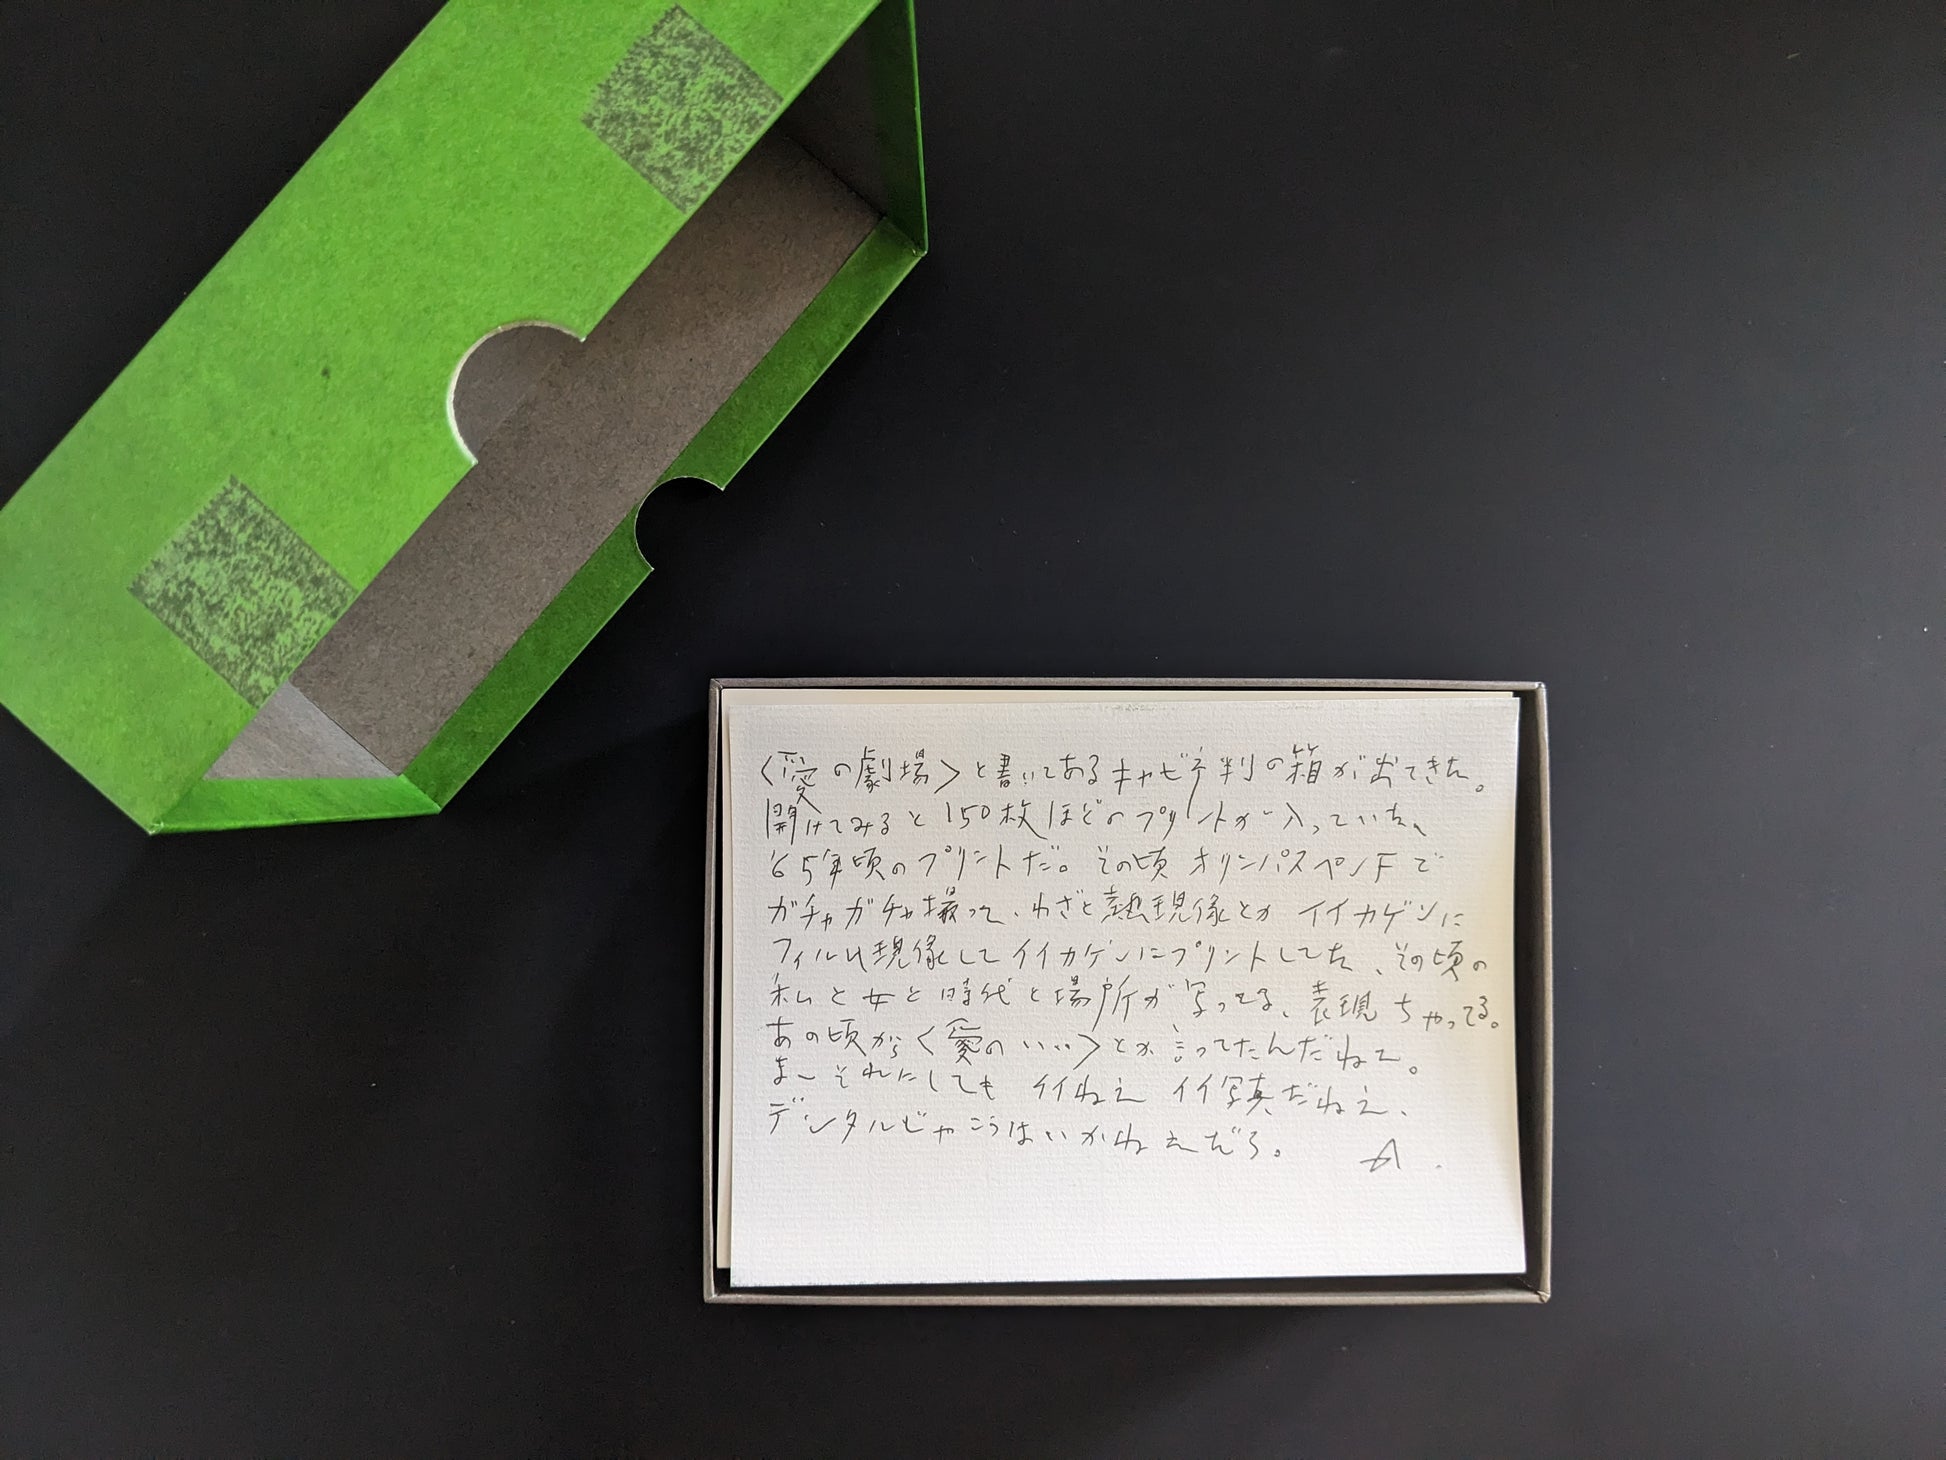 〈愛の劇場〉と書いてあるキャビネ判の箱が出てきた。
開けてみると150枚ほどのプリントが入っていた、
'65年頃のプリントだ。その頃 オリンパスペンFで
ガチャガチャ撮って、わざと熱現像とか イイカゲンに
フィルム現像してイイカゲンにプリントしてた、その頃の
私と女と時代と場所が写ってる、表現ちゃってる。
あの頃から〈愛の
とか 言ってたんだねェ。
ま〜それにしても イイねェ イイ写真だねェ、
デジタルじゃこうはいかねェだろ。
A.